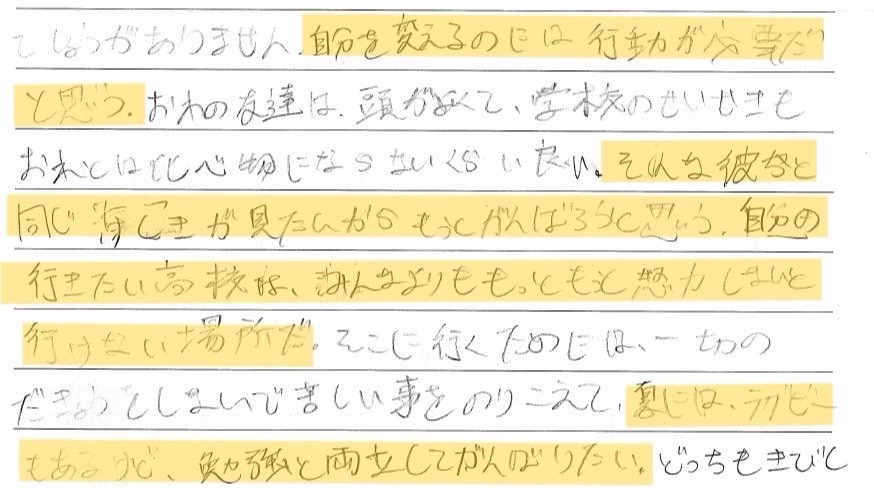 てしょうがありません。自分を変えるのには行動が必要だ
と思う。おれの友達は、頭がよくて、学校のせいせきも
おれとは比べ物にならないくらい良い。そんな彼等と
同じ景しきが見たいからもっとがんばろうと思う。自分の
行きたい高校は、みんなよりももっともっと努力しないと
行けない場所だ。そこに行くためには、一切の
だきょうをしないで苦しい事をのりこえて、夏には、ラグビー
もあるけど、勉強と両立してがんばりたい。どっちもきびし